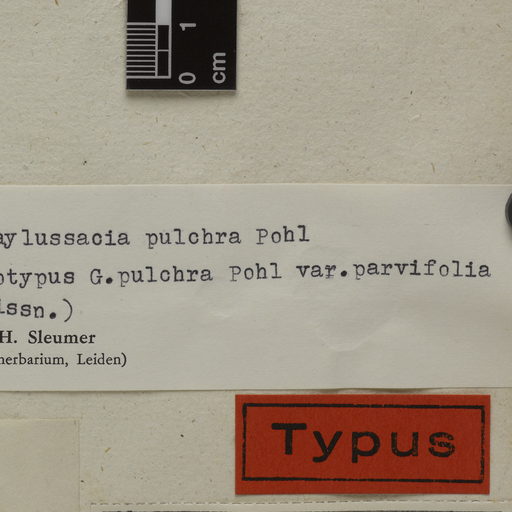 1
0
cm
aylussacia pulchra Pohl
otypus G.pulchra Pohl var.parvifolia
issn.)
H. Sleumer
herbarium, Leiden)
Typus